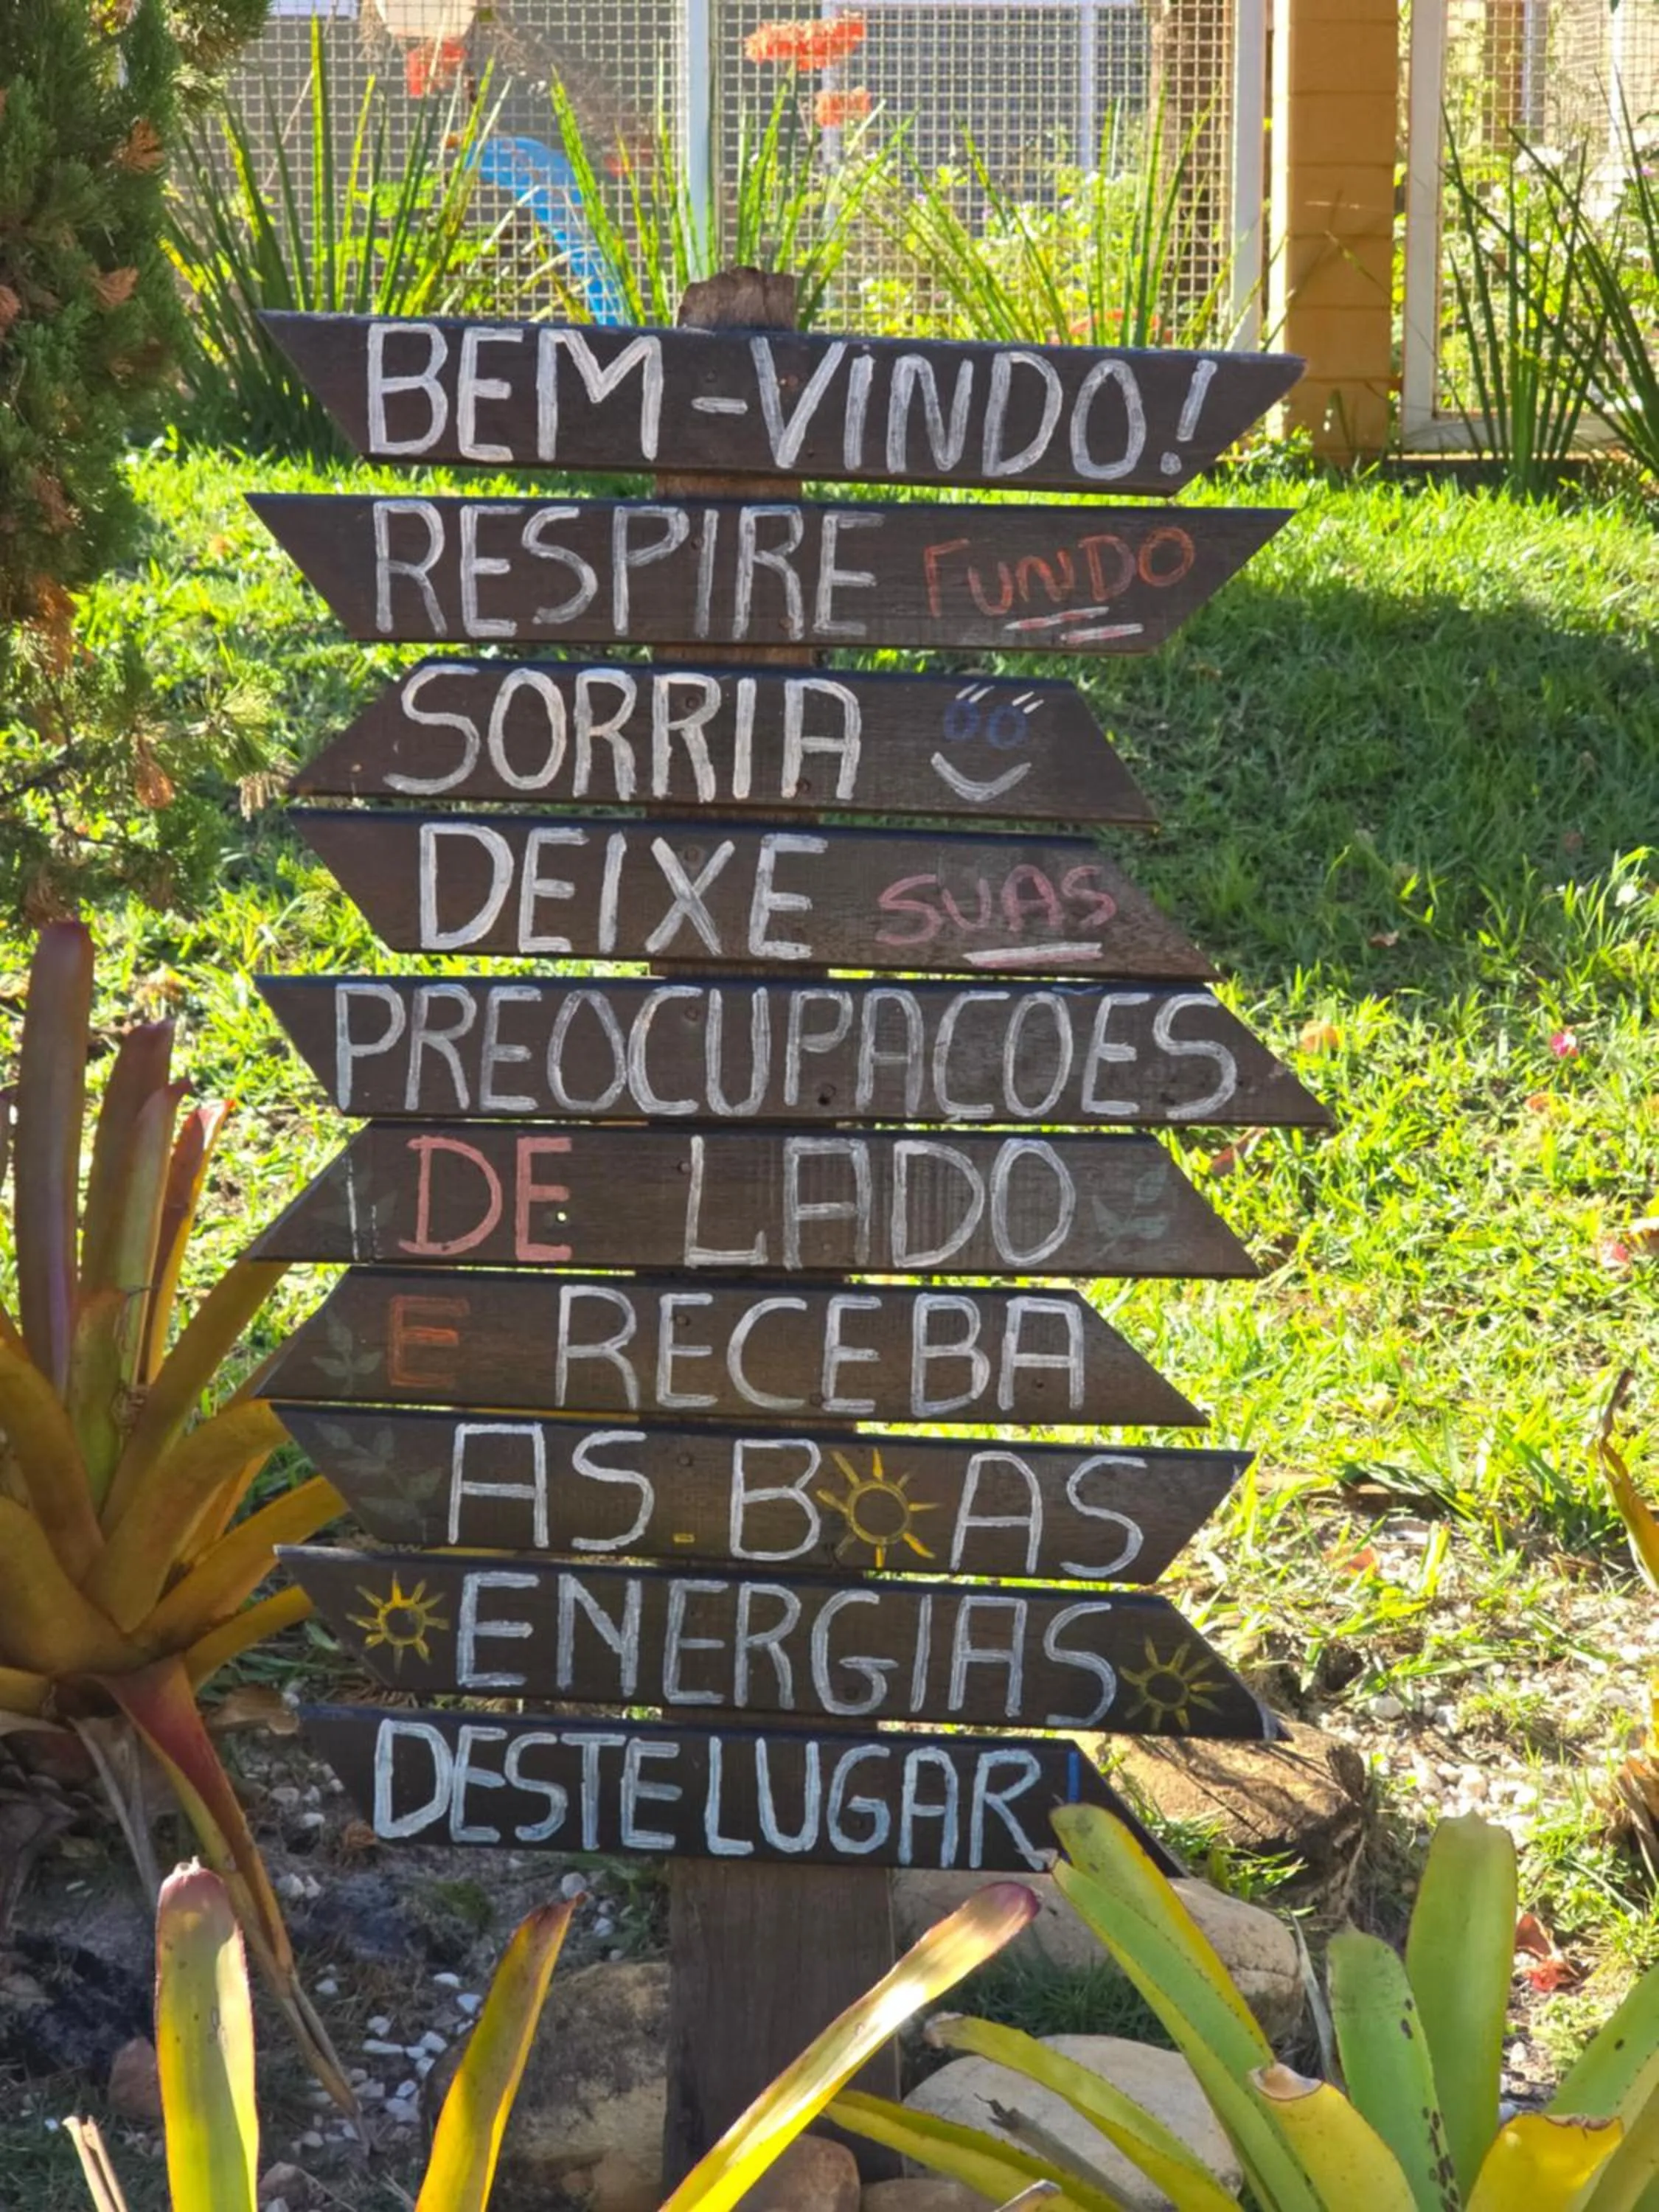 BEM-VINDO!
RESPIRE FUNDO
SORRIA
DEIXE SUAS
PREOCUPAÇOES
DE LADO
E RECEBA
AS BOAS
ENERGIAS
DESTE LUGAR!